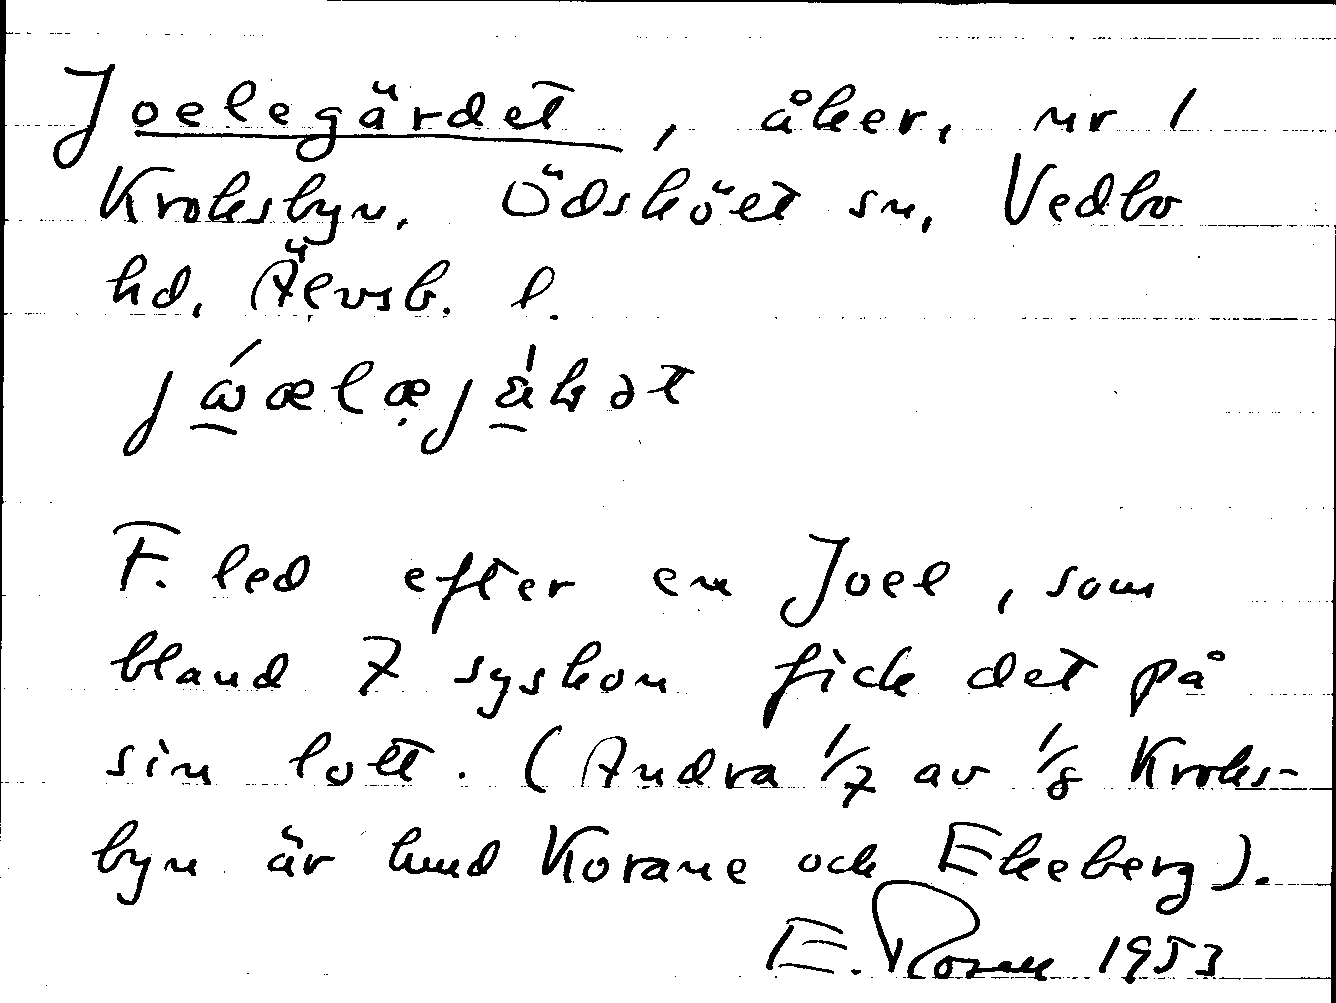 Joelegärdet, åker, nr 1
Kroksbyn. Ödskölt sn, Vedbo
hd. Älvsb. l.
F. led efter en Joel, som
bland 7 syskon fick det på
sin lott. (Andra 1/7 av 1/8 Kroks-
byn är lund Korane och Ekeberg).
E. Rosen 1953